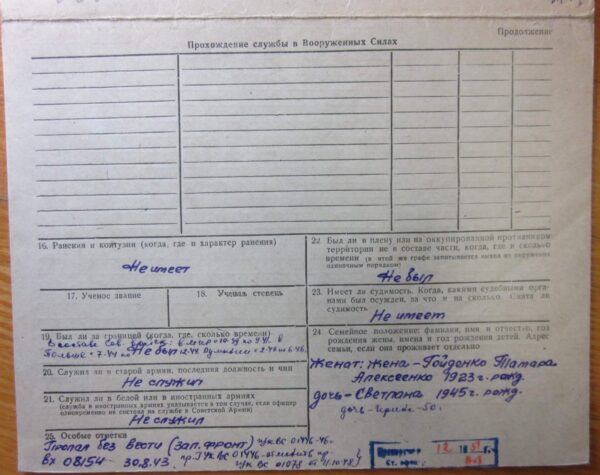 Продолжение
Прохождение службы в Вооруженных Силах
16. Ранения и контузии (когда, где и характер ранения)
Не имеет
17. Ученое звание
18. Ученая степень
19. Был ли за границей (когда, где, сколько времени)
В составе Сов.
Не был
20. Служил ли в старой армии, последняя должность и чин
Не служил
21. Служил ли в белой или в иностранных армиях
(служба в иностранных армиях указывается в том случае, если офицер
одновременно не состоял на службе в Советской Армии)
Не служил
22. Был ли в плену или на оккупированной противником
территории не в составе части, когда, где и сколько
времени (в этой же графе записывается выход из окружения
одиночным порядком)
Не был
23. Имеет ли судимость. Когда, какими судебными орга-
нами был осужден, за что и на сколько. Снята ли
судимость
Не имеет
24. Семейное положение: фамилия, имя и отчество, год
рождения жены, имена и год рождения детей. Адрес
семьи, если она проживает отдельно
Женат: жена - Гойденко Тамара
Алексеевна 1923 г. рожд.
дочь - Светлана 1945 г. рожд.
дочь - Ирина - 50.
25. Особые отметки
Пропал без вести (Зап. фронт)
вх 08154 - 30.8.43.